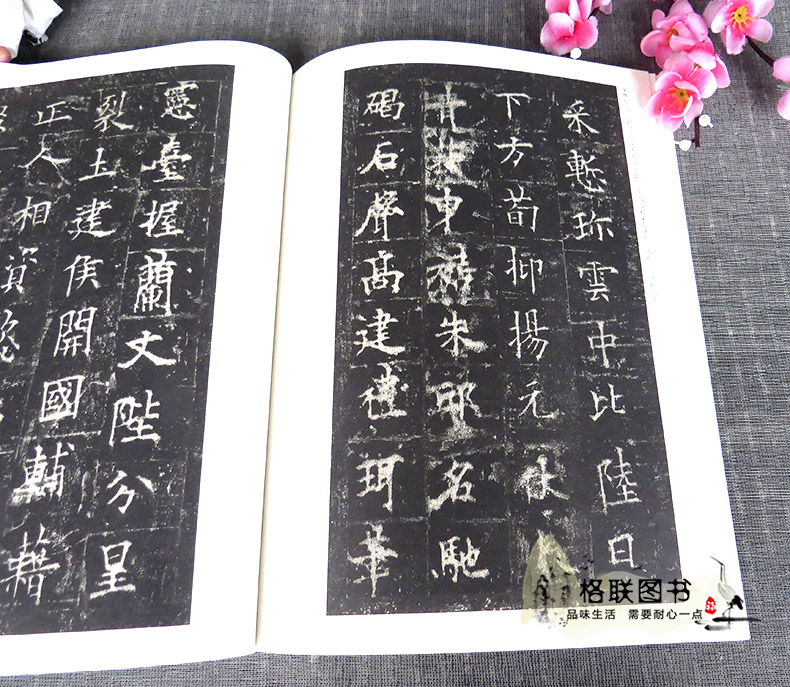 采慙珎雲中比陸日
下方荀抑揚元
青東朱邸名馳
碣石聲高建禮珂華
憲臺握蘭文陛分星
裂土建侯開國輔藉
正人相資
格联图书
品味生活 需要耐心一点